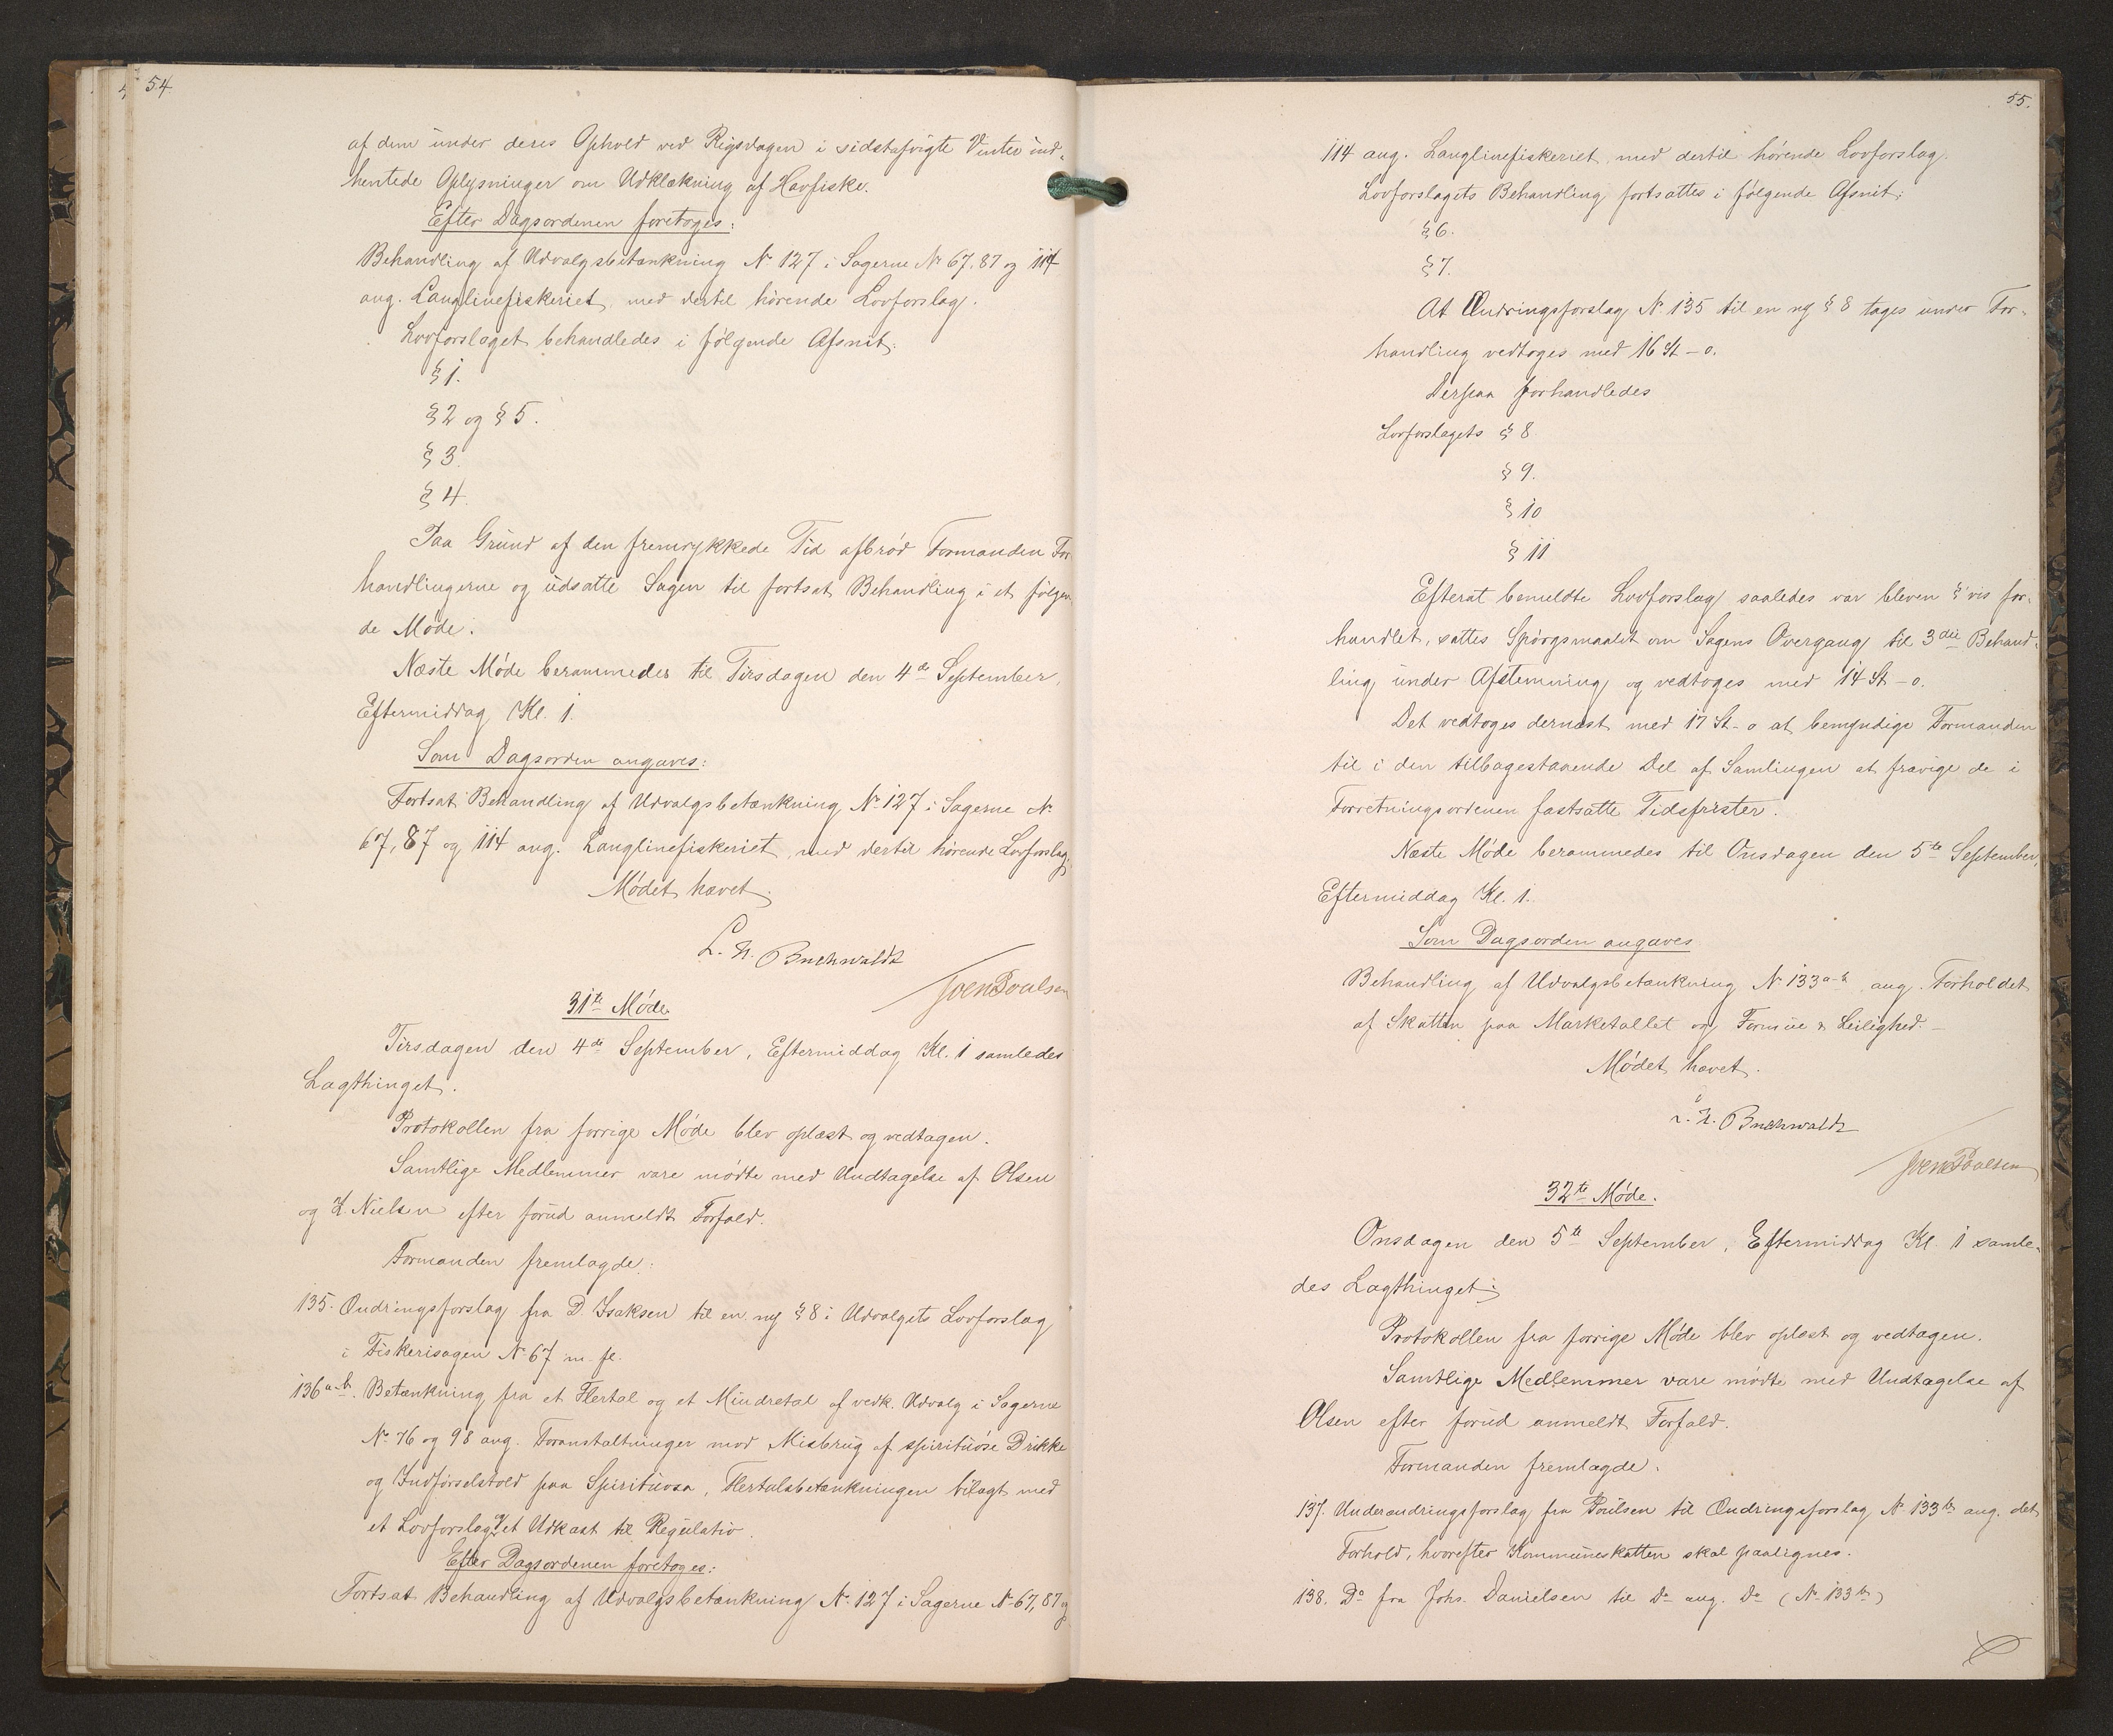 54.
af dem under deres Ophold ved Rigsdagen i sidstafvigte Vinter ind-
hentede Oplysninger om Udklækning af Havfiske.
Efter Dagsordenen foretoges:
Behandling af Udvalgsbetænkning No 127 i Sagerne No 67, 87 og 114
ang. Langlinefiskeriet, med dertil hørende Lovforslag.
Lovforslaget behandledes i følgende Afsnit:
§ 1.
§ 2 og § 5.
§ 3.
§ 4.
Paa Grund af den fremrykkede Tid afbrød Formanden For-
handlingerne og udsatte Sagen til fortsat Behandling i et følgen-
de Møde.
Næste Møde berammedes til Tirsdagen den 4de September,
Eftermiddag Kl. 1.
Som Dagsorden angaves:
Fortsat Behandling af Udvalgsbetænkning No 127 i Sagerne No
67, 87 og 114 ang. Langlinefiskeriet, med dertil hørende Lovforslag.
Mødet hævet.
L. H. Buchwaldt
Joen Poulsen
31te Møde.
Tirsdagen den 4de September, Eftermiddag Kl. 1 samledes
Lagthinget.
Protokollen fra forrige Møde blev oplæst og vedtagen.
Samtlige Medlemmer vare mødte med Undtagelse af Olsen
og Z. Nielsen efter forud anmeldt Forfald.
Formanden fremlagde:
135. Ændringsforslag fra D. Isaksen til en ny § 8 i Udvalgets Lovforslag
i Fiskerisagen No 67 m. fl.
136 a-b. Betænkning fra et Flertal og et Mindretal af vedk. Udvalg i Sagerne
No 76 og 98 ang. Foranstaltninger mod Misbrug af spirituøse Drikke
og Indførselstold paa Spirituosa, Flertalsbetænkningen bilagt med
et Lovforslag og et Udkast til Regulativ.
Efter Dagsordenen foretoges:
Fortsat Behandling af Udvalgsbetænkning No 127 i Sagerne No 67, 87 og
55.
114 ang. Langlinefiskeriet, med dertil hørende Lovforslag.
Lovforslagets Behandling fortsattes i følgende Afsnit:
§ 6.
§ 7.
At Ændringsforslag No 135 til en ny § 8 tages under For-
handling vedtoges med 16 St - 0.
Derpaa forhandledes
Lovforslagets § 8
§ 9.
§ 10
§ 11
Efterat bemeldte Lovforslag saaledes var bleven §'vis for-
handlet, sattes Spørgsmaalet om Sagens Overgang til 3die Behand-
ling under Afstemning og vedtoges med 14 St - 0.
Det vedtoges dernæst med 17 St - 0 at bemyndige Formanden
til i den tilbagestaaende Del af Samlingen at fravige de i
Forretningsordenen fastsatte Tidsfrister.
Næste Møde berammedes til Onsdagen den 5te September,
Eftermiddag Kl. 1.
Som Dagsorden angaves
Behandling af Udvalgsbetænkning No 133 a-b ang. Forholdet
af Skatten paa Marketallet og Formue & Leilighed.
Mødet hævet.
L. H. Buchwaldt
Joen Poulsen
32te Møde.
Onsdagen den 5te September, Eftermiddag Kl. 1 samle-
des Lagthinget.
Protokollen fra forrige Møde blev oplæst og vedtagen.
Samtlige Medlemmer vare mødte med Undtagelse af
Olsen efter forud anmeldt Forfald.
Formanden fremlagde.
137. Underændringsforslag fra Poulsen til Ændringsforslag No 133 b ang. det
Forhold, hvorefter Kommuneskatten skal paalignes.
138. Do fra Johs. Danielsen til Do ang. Do (No 133 b)